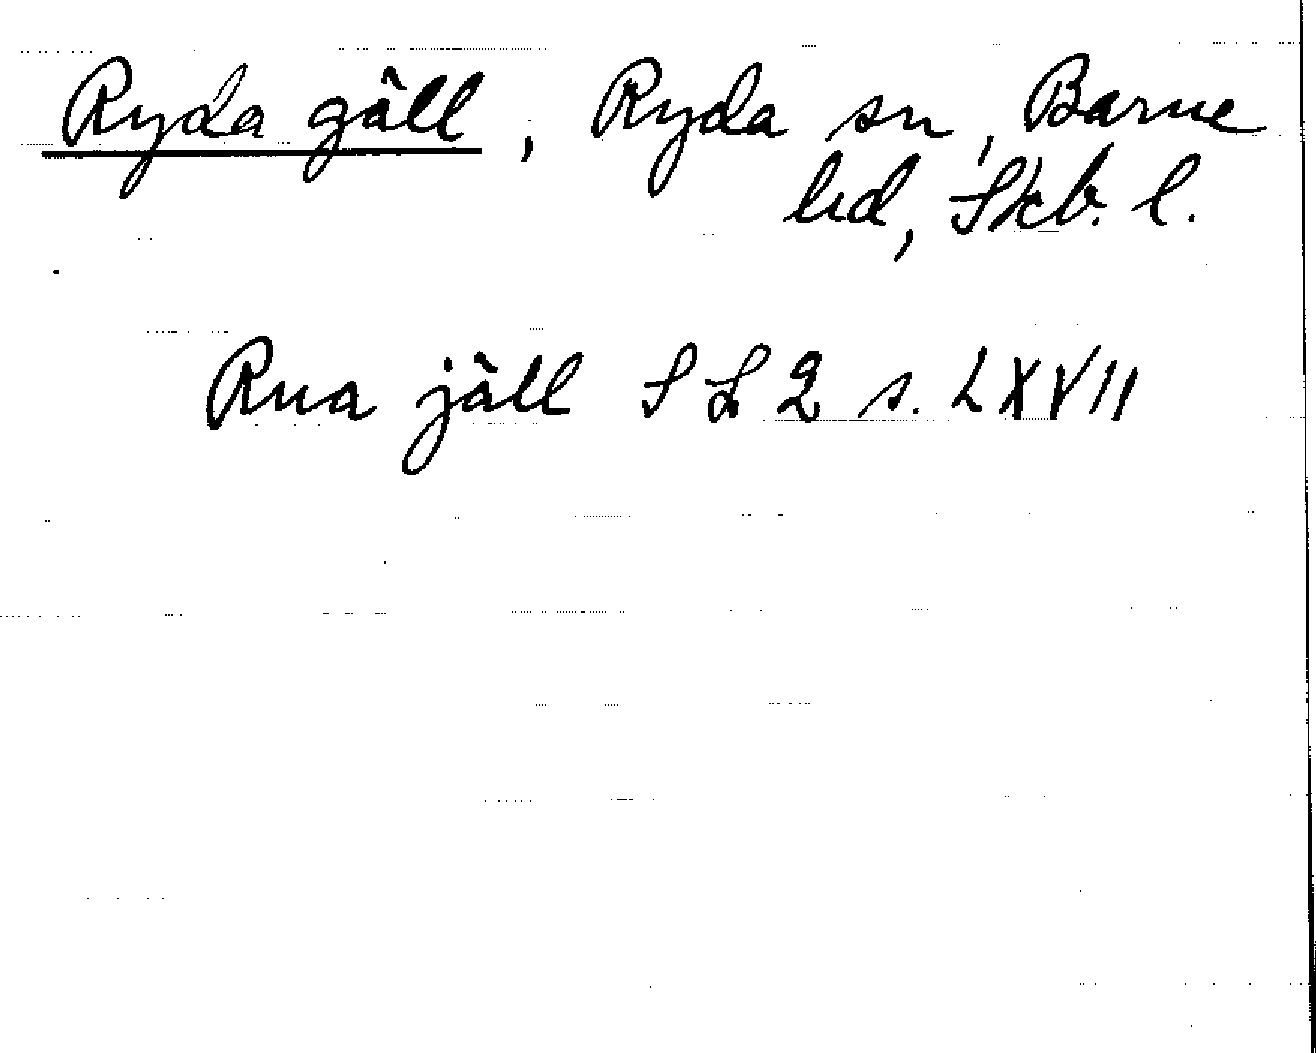 Ryda gäll, Ryda sn, Barne
hd, Skb. l.
Rua jäll S L 2 s. LXVII